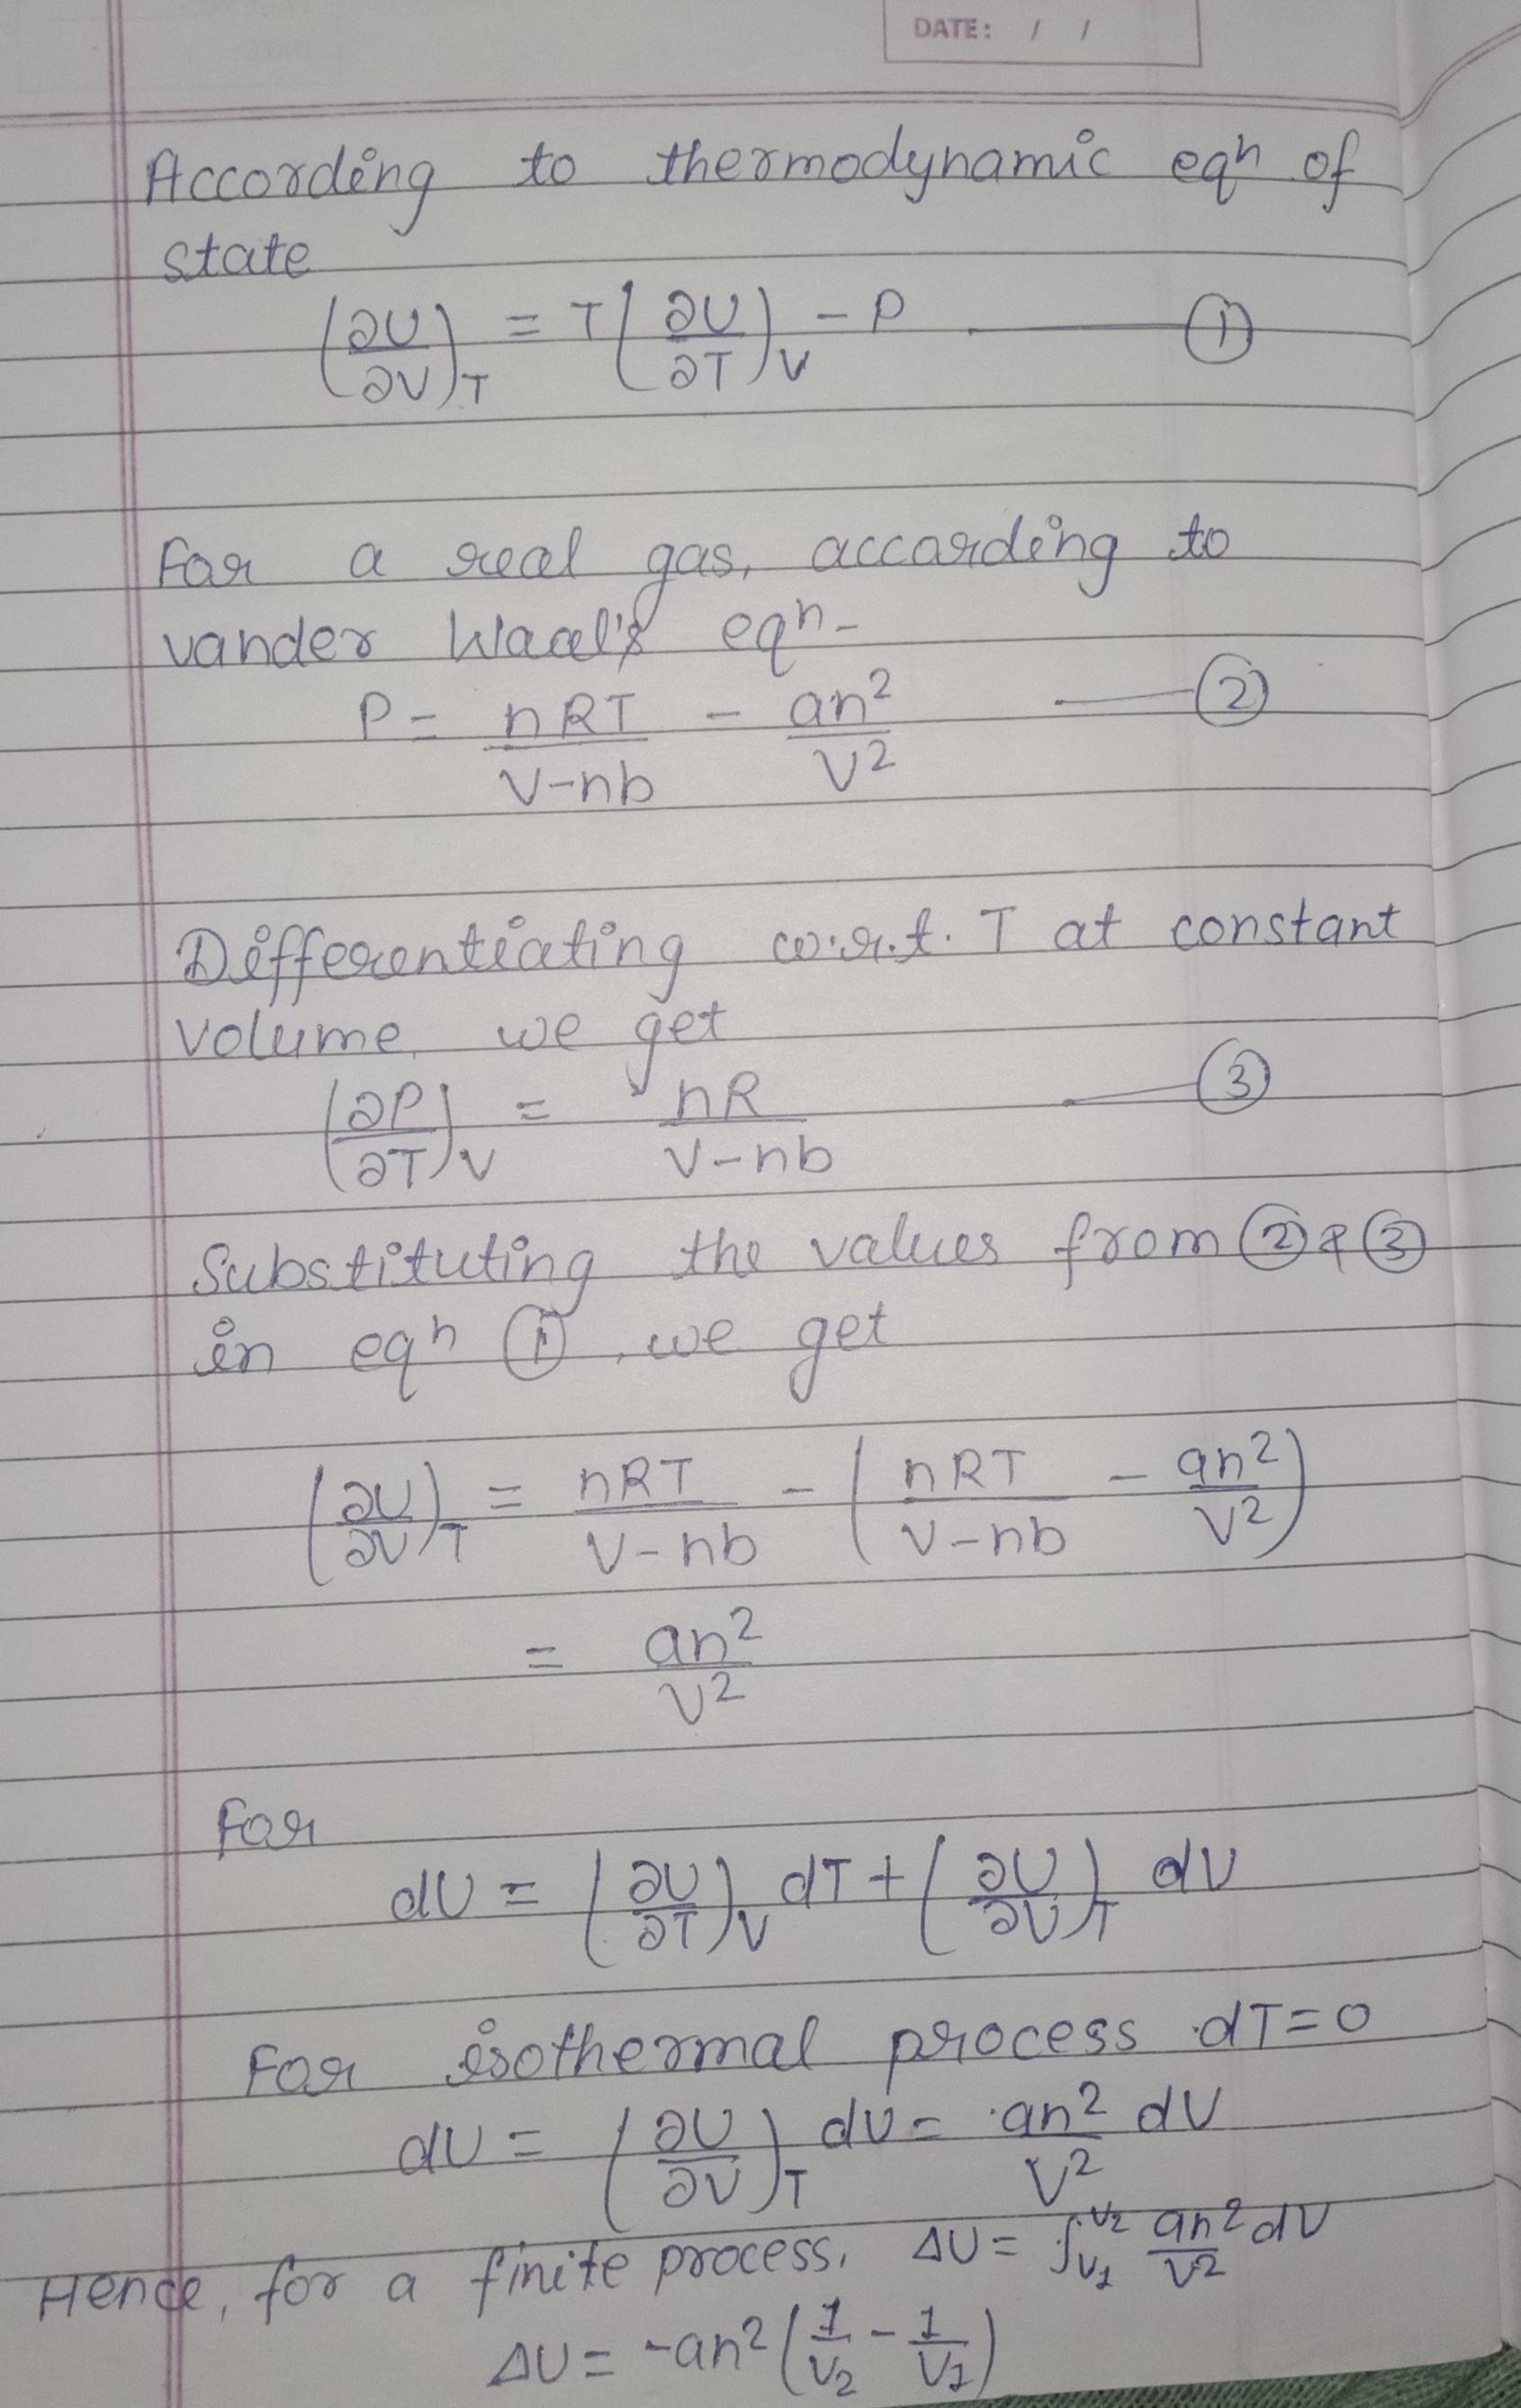 DATE: / /
According to thermodynamic eqⁿ of
state
(∂U/∂V)_T = T(∂U/∂T)_V - P ——— ①
For a real gas, according to
vander Waal's eqⁿ-
P = nRT/(V-nb) - an²/V² ——— ②
Differentiating w.r.t. T at constant
volume, we get
(∂P/∂T)_V = nR/(V-nb) ——— ③
Substituting the values from ② & ③
in eqⁿ ①, we get
(∂U/∂V)_T = nRT/(V-nb) - (nRT/(V-nb) - an²/V²)
= an²/V²
For
dU = (∂U/∂T)_V dT + (∂U/∂V)_T dV
For isothermal process dT=0
dU = (∂U/∂V)_T dV = an²/V² dV
Hence, for a finite process, ΔU = ∫_V₁^V₂ an²/V² dV
ΔU = -an² (1/V₂ - 1/V₁)